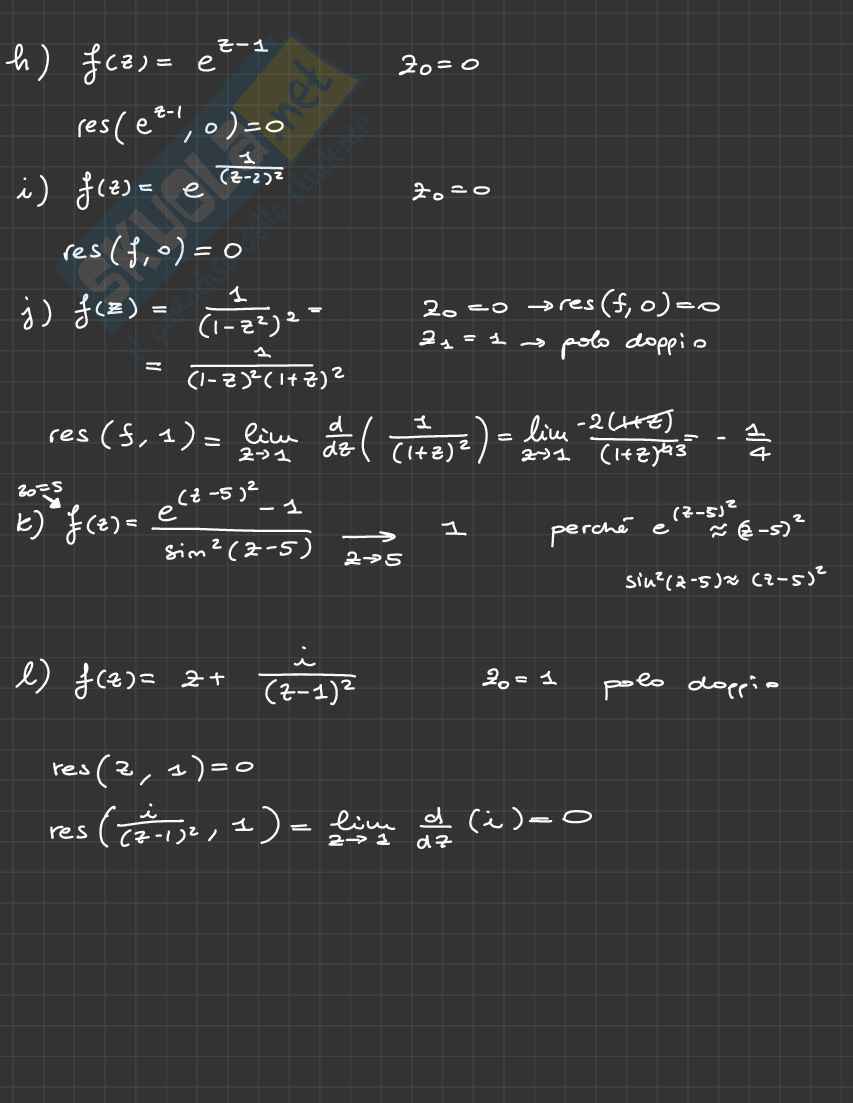 h) f(z) = e^{z-1} z₀ = 0
res(e^{z-1}, 0) = 0
i) f(z) = e^{\frac{1}{(z-2)^2}} z₀ = 0
res(f, 0) = 0
j) f(z) = \frac{1}{(1-z^2)^2} = z₀ = 0 → res(f, 0) = 0
= \frac{1}{(1-z)^2(1+z)^2} z₁ = 1 → polo doppio
res(f, 1) = \lim_{z→1} \frac{d}{dz}(\frac{1}{(1+z)^2}) = \lim_{z→1} \frac{-2(1+z)}{(1+z)^{4 3}} = -\frac{1}{4}
z₀=5
k) f(z) = \frac{e^{(z-5)^2} - 1}{sin^2(z-5)} \xrightarrow[z→5]{} 1 perché e^{(z-5)^2} ≈ (z-5)^2
sin²(z-5) ≈ (z-5)²
l) f(z) = z + \frac{i}{(z-1)^2} z₀ = 1 polo doppio
res(z, 1) = 0
res(\frac{i}{(z-1)^2}, 1) = \lim_{z→1} \frac{d}{dz}(i) = 0
SKUOLA.net